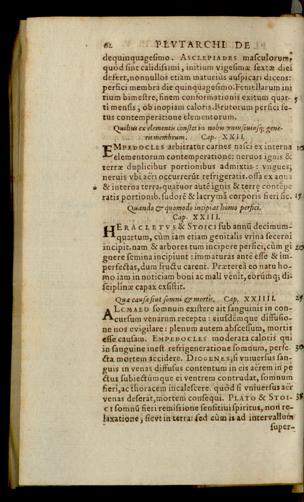 62 PLVTARCHI DE
dequinquagesimo. ASCLEPIADES masculorum,
quòd sint calidissimi, initium vigesimæ sextæ diei
defert, nonnullos etiam maturius auspicari dicens:
perfici membra die quinquagesimo. Femellarum ini
tium bimestre, finem conformationis exitum quar-
ti mensis, ob inopiam caloris. Brutorum perfici fe-
tus contemperatione elementorum.
Quibus ex elementis constet in nobis
nere membrum. Cap. XXII.
EMPEDOCLES arbitratur carnes nasci ex interna 10
elementorum contemperatione: neruos ignis &
terræ duplicibus portionibus admixtis: vngues,
neruis vbi aëri occurrerũt refrigeratis. ossa ex aqua
& interna terra. quatuor autẽ ignis & terrę contẽpe
ratis portionib. sudorẽ & lacrymã corporis fieri sic. 15
Quando & quomodo incipiat homo perfici.
Cap. XXIII.
HERACLETVS & STOICI sub annũ decimum-
quartum, cùm iam etiam genitalis vrina secerni
incipit. nam & arbores tum incipere perfici, cùm gi 20
gnere semina incipiunt: immaturas antè esse & im-
perfectas, dum fructu carent. Prætereà eo natu ho-
mo iam in noticiam boni ac mali venit, eorũmq; di-
sciplinæ capax existit.
Quæ causa sint somni & mortis. Cap. XXIIII. 25
ALCMAEO somnum existere ait sanguinis in con-
cursum venarum receptu: eiusdémque diffusio-
ne nos euigilare: plenum autem abscessum, mortis
esse causam. EMPEDOCLES moderata caloris qui
in sanguine inest refrigeratione somnum, perfe- 30
cta mortem accidere. DIOGENES, si vniuersus san-
guis in venas diffusus contentum in eis aërem in pe
ctus subiectúmque ei ventrem contrudat, somnum
fieri, ac thoracem incalescere. quòd si vniuersus aër
venas deserat, mortem consequi. PLATO & STOI- 35
CI somnũ fieri remissione sensitiui spiritus, non re-
laxatione, sicvt in terra: sed cùm is ad interuallum
super-